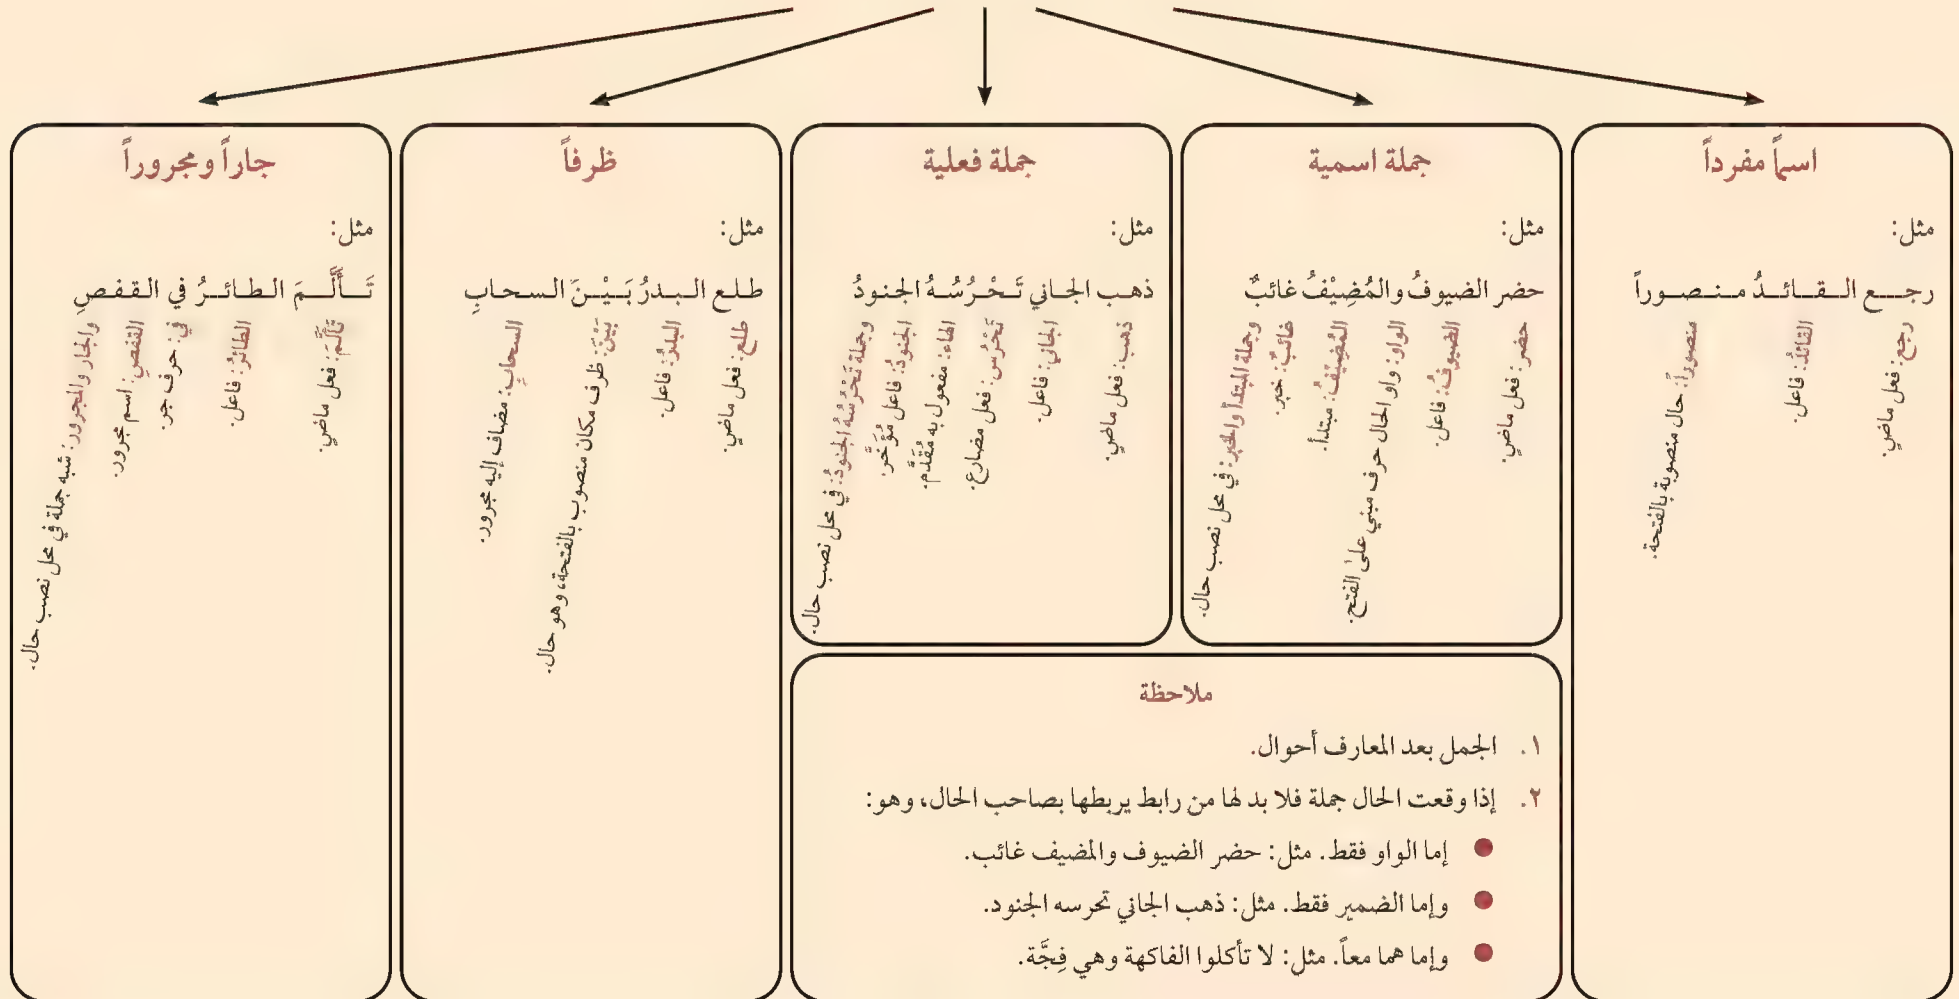 اسماً مفرداً
مثل:
رجع القائدُ منصوراً
رجع: فعل ماضٍ.
القائدُ: فاعل.
منصوراً: حال منصوبة بالفتحة.
جملة اسمية
مثل:
حضر الضيوفُ والمُضِيْفُ غائبٌ
حضر: فعل ماضٍ.
الضيوفُ: فاعل.
الواو: واو الحال حرف مبني على الفتح.
المُضِيْفُ: مبتدأ.
غائبٌ: خبر.
وجملة المبتدأ والخبر: في محل نصب حال.
جملة فعلية
مثل:
ذهب الجاني تَحْرُسُهُ الجنودُ
ذهب: فعل ماضٍ.
الجاني: فاعل.
تَحْرُس: فعل مضارع.
الهاء: مفعول به مُقَدَّم.
الجنودُ: فاعل مُؤَخَّر.
وجملة تَحْرُسُهُ الجنودُ: في محل نصب حال.
ظرفاً
مثل:
طلع البدرُ بَيْنَ السحابِ
طلع: فعل ماضٍ.
البدرُ: فاعل.
بَيْنَ: ظرف مكان منصوب بالفتحة، وهو حال.
السحابِ: مضاف إليه مجرور.
جاراً ومجروراً
مثل:
تَأَلَّمَ الطائرُ في القفصِ
تَأَلَّمَ: فعل ماضٍ.
الطائرُ: فاعل.
في: حرف جر.
القفصِ: اسم مجرور.
والجار والمجرور: شبه جملة في محل نصب حال.
ملاحظة
١. الجمل بعد المعارف أحوال.
٢. إذا وقعت الحال جملة فلا بد لها من رابط يربطها بصاحب الحال، وهو:
● إما الواو فقط. مثل: حضر الضيوف والمضيف غائب.
● وإما الضمير فقط. مثل: ذهب الجاني تحرسه الجنود.
● وإما هما معاً. مثل: لا تأكلوا الفاكهة وهي فِجَّة.